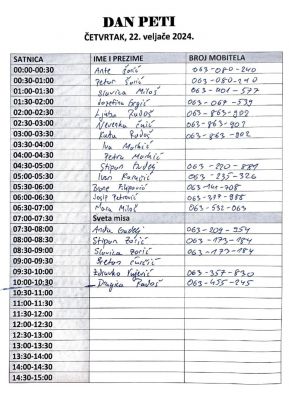 DAN PETI
ČETVRTAK, 22. veljače 2024.
SATNICA IME I PREZIME BROJ MOBITELA
00:00-00:30 Ante 063-080-240
00:30-01:00 Petar 063-080-240
01:00-01:30 Slavica Miloš 063-001-577
01:30-02:00 063-067-539
02:00-02:30 Ljuba Radoš 063-863-902
02:30-03:00 Nevenka 063-863-902
03:00-03:30 Kata Radoš 063-863-902
03:30-04:00 Iva
04:00-04:30 Petra
04:30-05:00 Stipan 063-220-889
05:00-05:30 Ivan 063-235-326
05:30-06:00 Bone Filipović 063-141-708
06:00-06:30 Josip Petrović 063-317-988
06:30-07:00 Mara Miloš 063-532-063
07:00-07:30 Sveta misa
07:30-08:00 Anda 063-209-954
08:00-08:30 Stipan 063-173-184
08:30-09:00 Slavica 063-173-184
09:00-09:30
09:30-10:00 Zdravko 063-357-830
10:00-10:30 Dragica Radoš 063-455-245
10:30-11:00
11:00-11:30
11:30-12:00
12:00-12:30
12:30-13:00
13:00-13:30
13:30-14:00
14:00-14:30
14:30-15:00